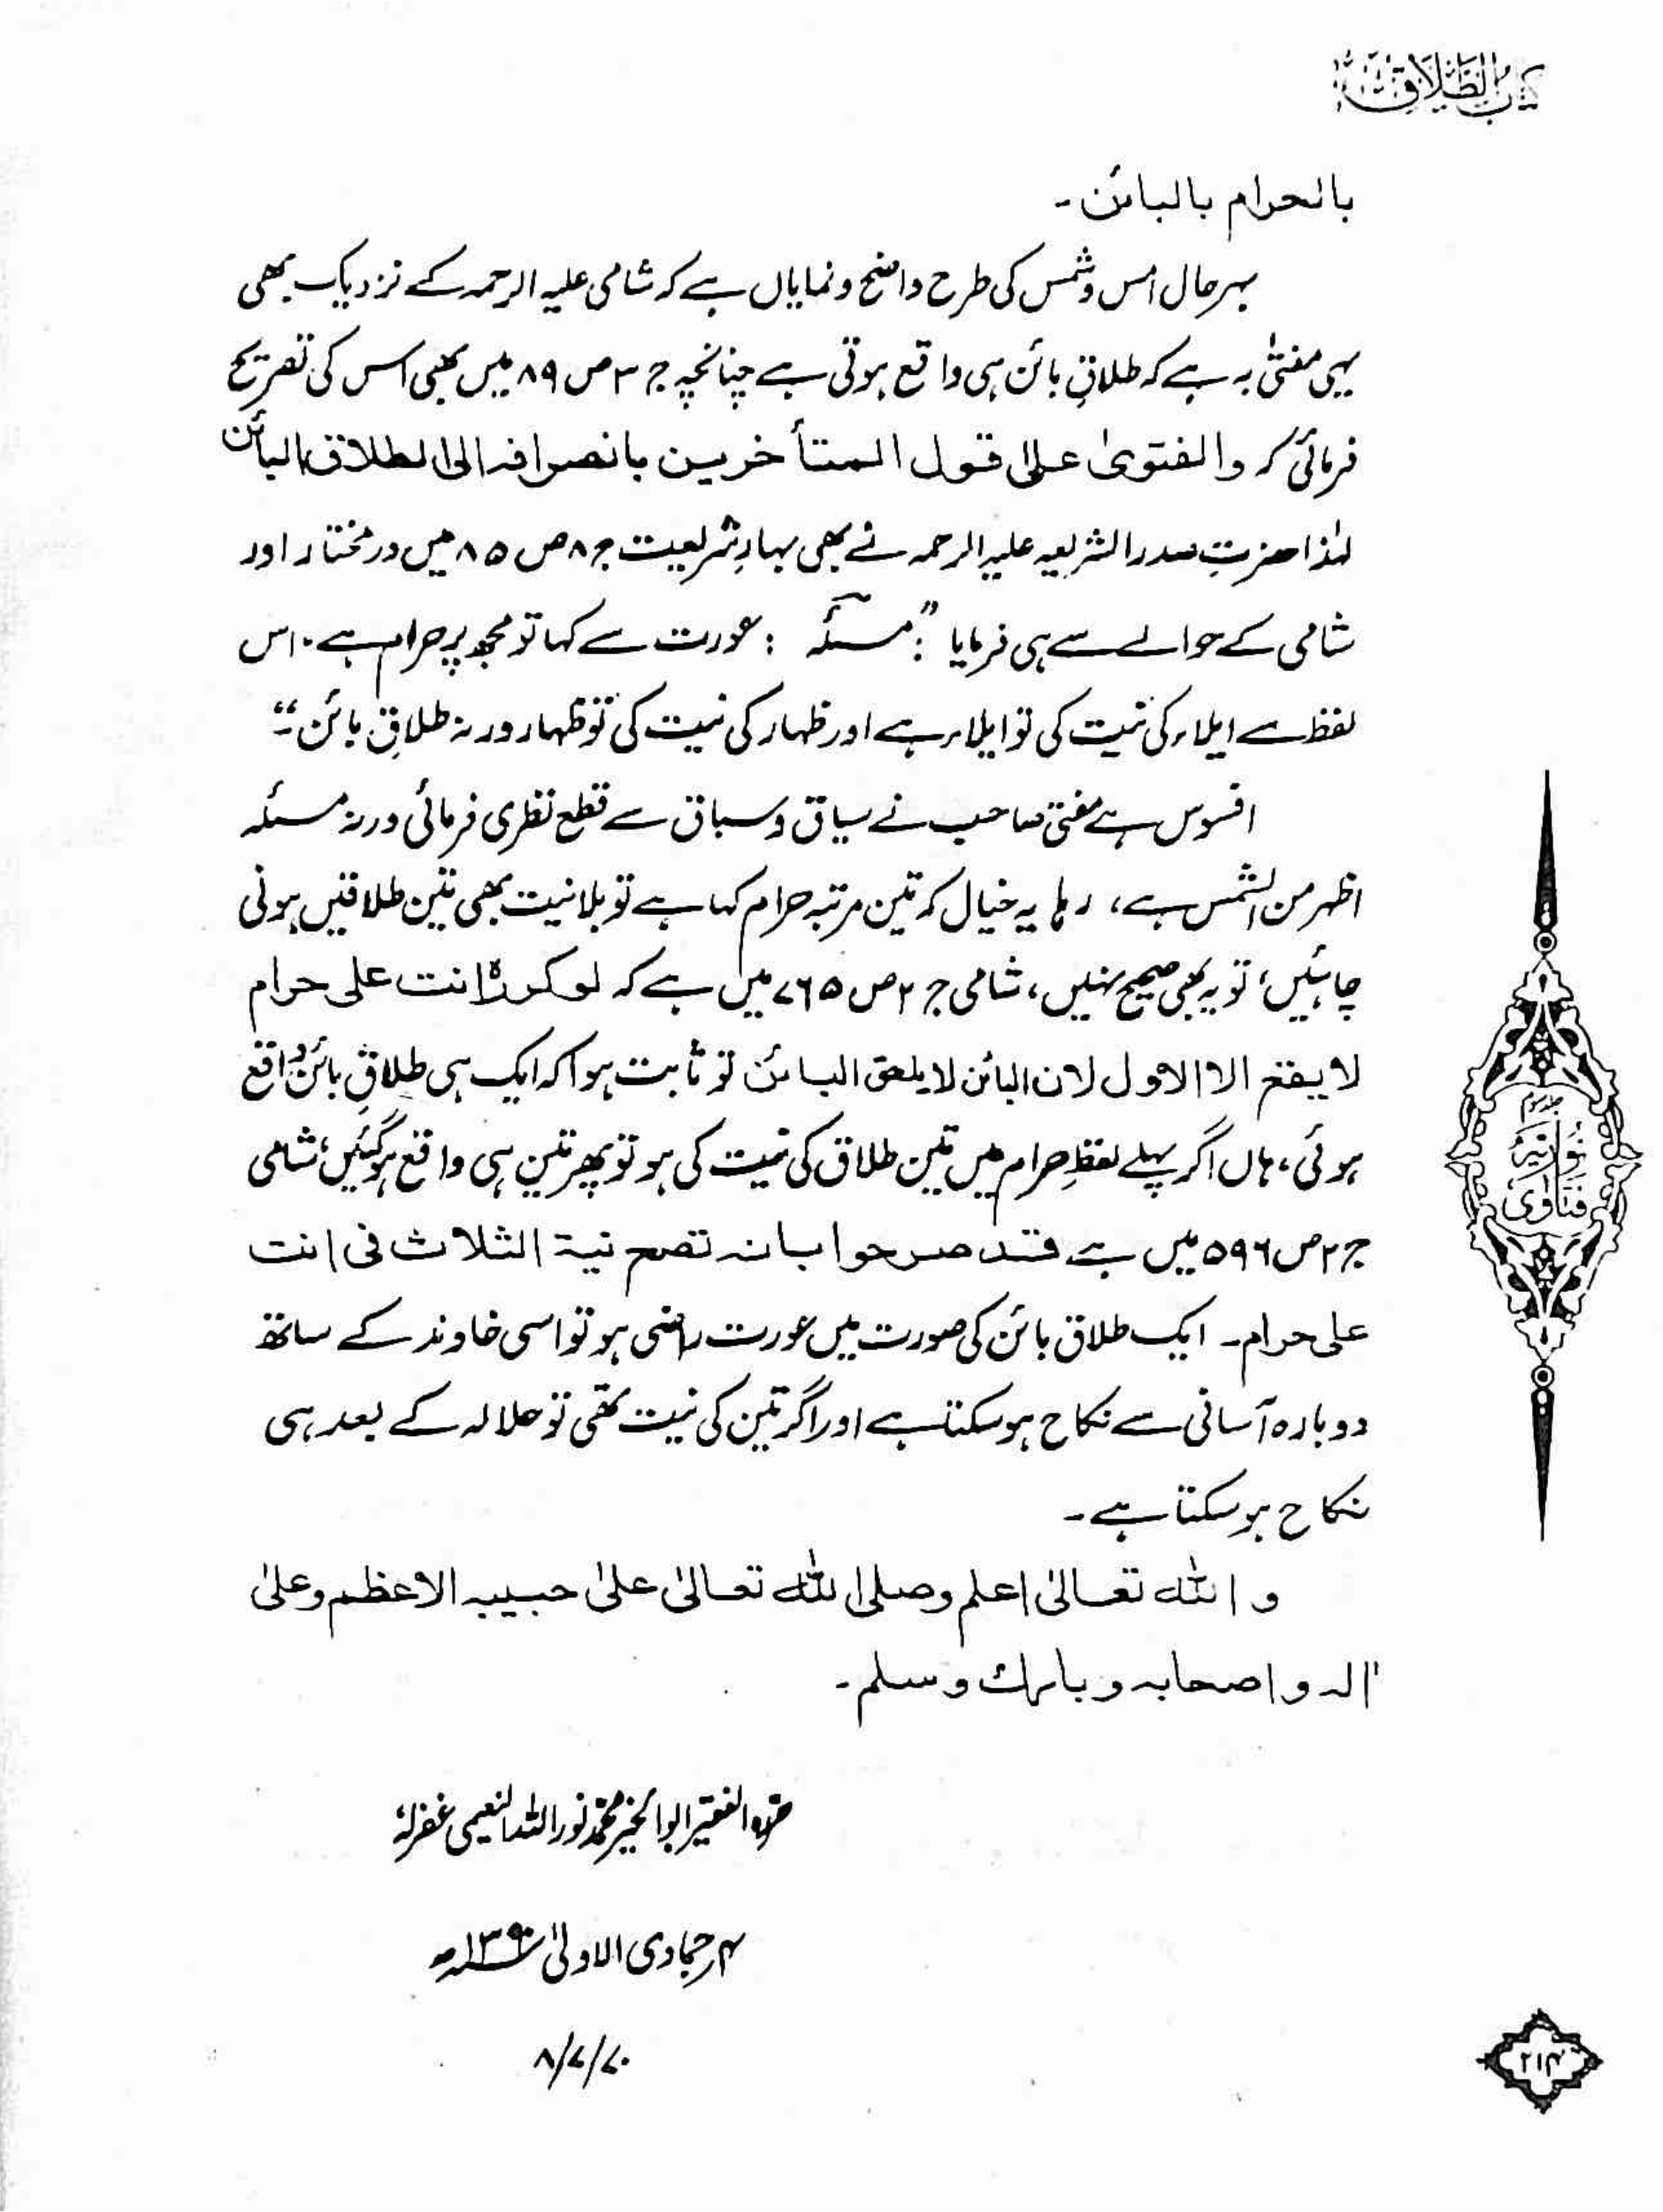 کتاب الطلاق
بالحرام بالبائن۔
بہرحال امس و شمس کی طرح واضح و نمایاں ہے کہ شامی علیہ الرحمہ کے نزدیک بھی
یہی مفتیٰ بہ ہے کہ طلاقِ بائن ہی واقع ہوتی ہے چنانچہ ج ۳ ص ۸۹ میں بھی اس کی تصریح
فرمائی کہ والفتویٰ علیٰ قول المتأخرین بانصرافہ الی الطلاق البائن
لہٰذا حضرتِ صدر الشریعہ علیہ الرحمہ نے بھی بہارِ شریعت ج ۸ ص ۸۵ میں در مختار اور
شامی کے حوالے سے ہی فرمایا ”: مسئلہ : عورت سے کہا تو مجھ پر حرام ہے۔ اس
لفظ سے ایلاء کی نیت کی تو ایلاء ہے اور ظہار کی نیت کی تو ظہار ورنہ طلاقِ بائن“۔
افسوس ہے مفتی صاحب نے سیاق و سباق سے قطع نظری فرمائی ورنہ مسئلہ
اظہر من الشمس ہے، رہا یہ خیال کہ تین مرتبہ حرام کہا ہے تو بلا نیت بھی تین طلاقیں ہونی
چاہئیں، تو یہ بھی صحیح نہیں، شامی ج ۲ ص ۷۶۵ میں ہے کہ لو کررہ انت علی حرام
لا یقع الا الاول لان البائن لا یلحق البائن تو ثابت ہوا کہ ایک ہی طلاقِ بائن واقع
ہوئی، ہاں اگر پہلے لفظِ حرام میں تین طلاق کی نیت کی ہو تو پھر تین ہی واقع ہوگئیں، شامی
ج ۲ ص ۵۹۶ میں ہے قد صرحوا بانہ تصح نیۃ الثلاث فی انت
علی حرام۔ ایک طلاق بائن کی صورت میں عورت راضی ہو تو اسی خاوند کے ساتھ
دوبارہ آسانی سے نکاح ہو سکتا ہے اور اگر تین کی نیت تھی تو حلالہ کے بعد ہی
نکاح ہو سکتا ہے۔
و اللہ تعالیٰ اعلم وصلی اللہ تعالیٰ علیٰ حبیبہ الاعظم وعلیٰ
اٰلہ و اصحابہ و بارک و سلم۔
حررہ الفقیر ابو الخیر محمد نور اللہ النعیمی غفرلہٗ
۴ جمادی الاولیٰ ۱۳۹۰ھ
۸/۷/۷۰
جلد سوم
نوریہ
فتاویٰ
۲۱۴